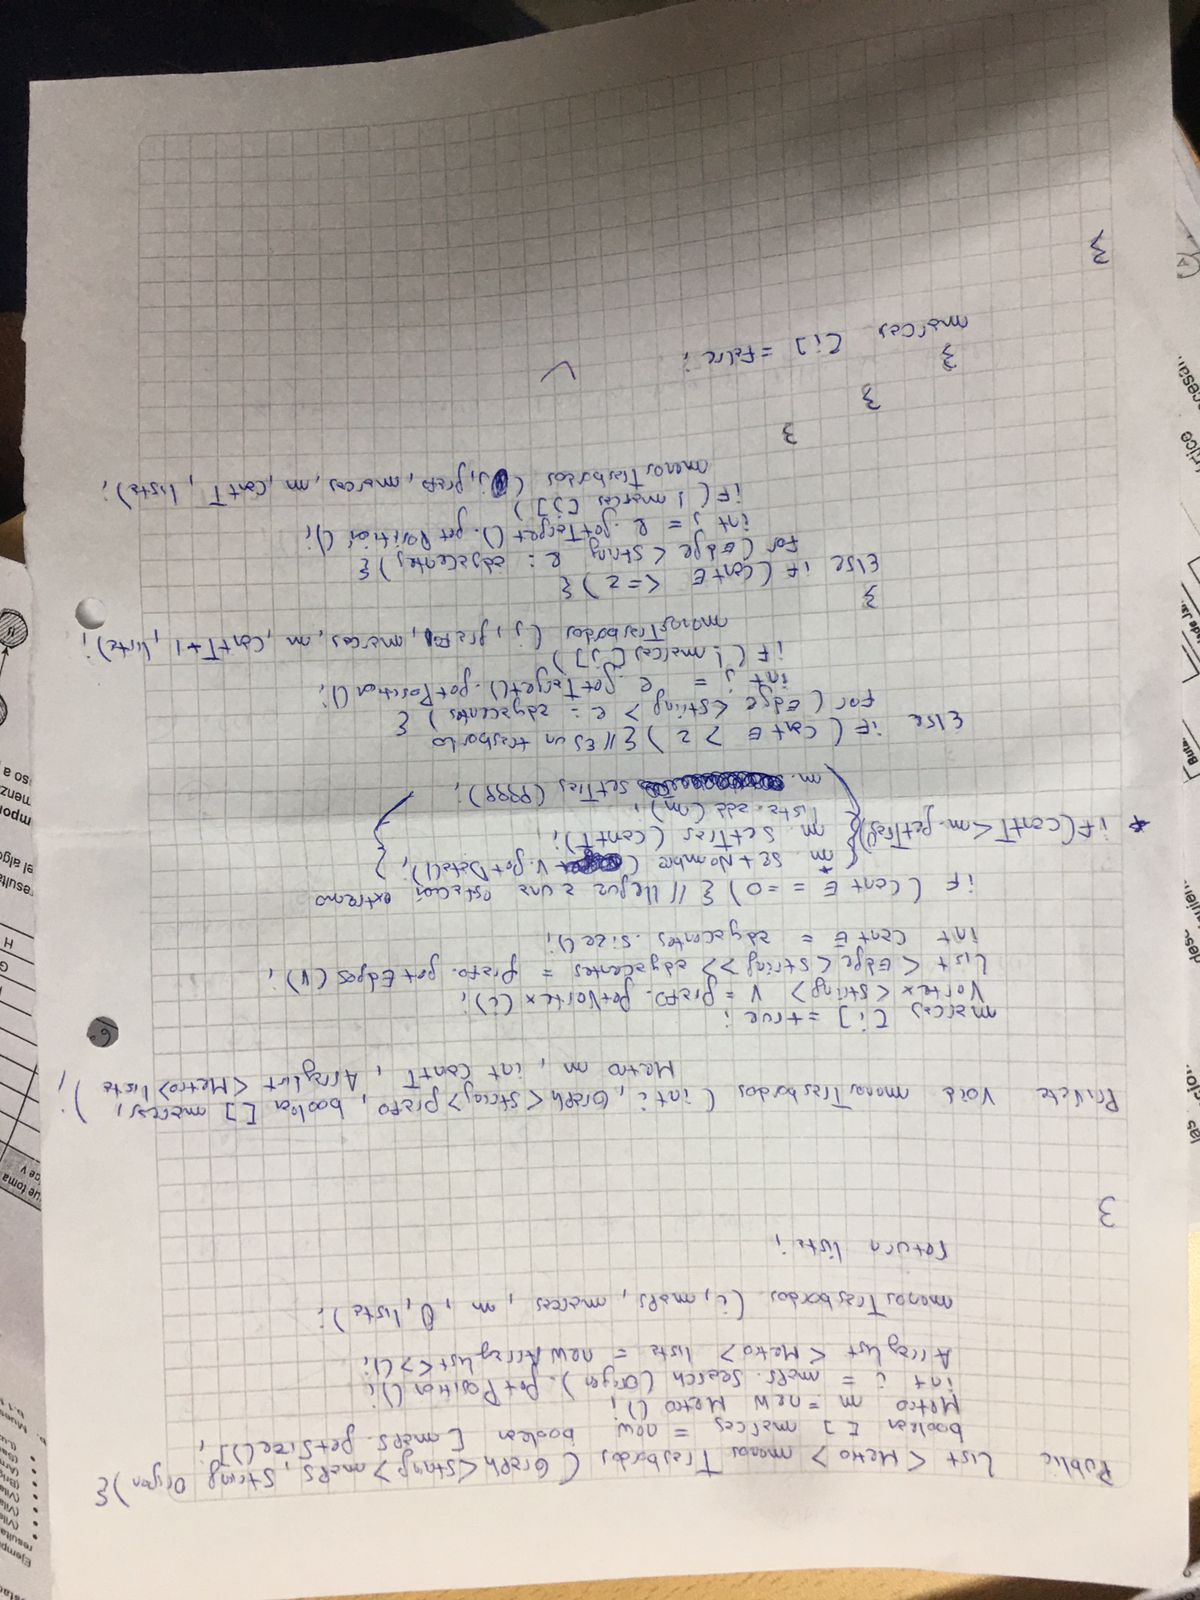 Public List <Metro> menosTrasbordos (Graph <String> mapa, String Origen) {
boolean [] marcas = new boolean [mapa.getSize()];
Metro m = new Metro ();
int i = mapa.search (Origen).getPosition ();
ArrayList <Metro> lista = new ArrayList <> ();
menosTrasbordos (i, mapa, marcas, m, 0, lista);
return lista;
}
Private void menosTrasbordos (int i, Graph <String> grafo, boolean [] marcas,
Metro m, int contT, ArrayList <Metro> lista );
marcas [i] = true ;
Vertex <String> v = grafo.getVertex (i);
List <Edge <String>> adyacentes = grafo.getEdges (v);
int cantE = adyacentes.size ();
if (cantE == 0) { // llegue a una estacion extremo
* { m setNombre ( v.getData());
* if (contT < m.getTras()) { m. setTras (contT);
lista.add (m);
m. setTras (9999);
Else if (cantE > 2) { // Es un trasbordo
for (Edge <String> e : adyacentes) {
int j = e.getTarget().getPosition ();
if (! marcas [j])
menosTrasbordos (j, grafo, marcas, m, contT+1, lista);
}
Else if (cantE <= 2) {
for (Edge <String e : adyacentes) {
int j = e.getTarget ().getPosition ();
if (! marcas [j])
menosTrasbordos ( j, grafo, marcas, m, contT, lista);
}
}
}
marcas [i] = false ;
}